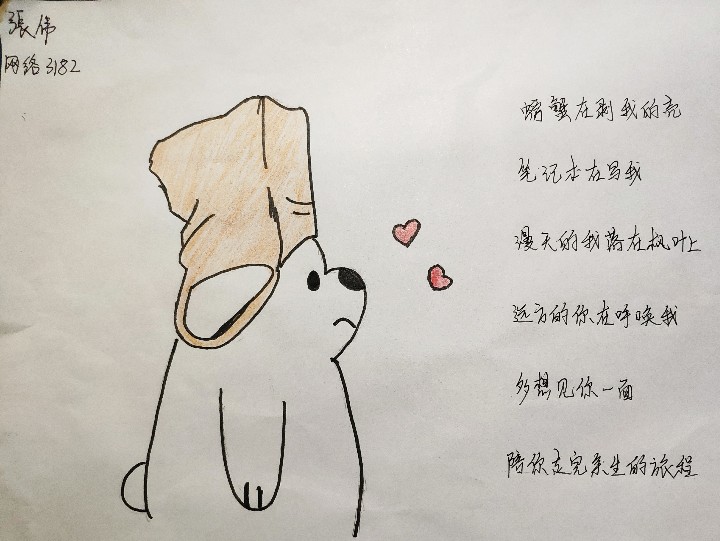 張伟
网络3182
螃蟹在剥我的壳
笔记本在写我
漫天的我落在枫叶上
远方的你在呼唤我
多想见你一面
陪你走完余生的旅程